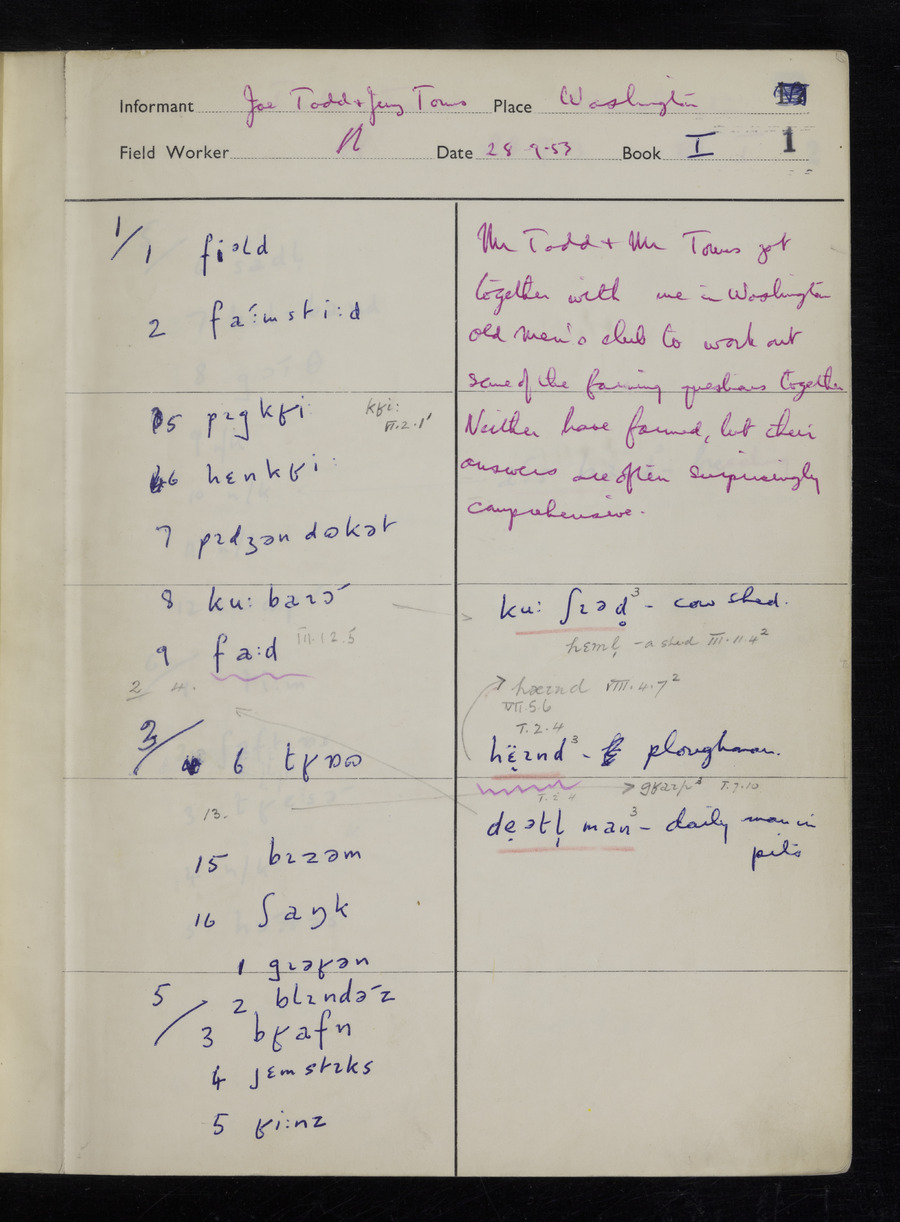 Informant Joe Todd + Jerry Towns Place Washington
Field Worker N Date 28-9-53 Book I 1
1/ 1 fiəld
2 fa:msti:d
5 pɪgkʁi:
kʁi:
VI.2.1'
6 hɛnkʁi:
7 pɪdʒən dɷkət
8 ku: baɪɔ
9 fa:d
III.12.5
2 4.
3/ 6 tʁɒɷ
13.
15 bɪzəm
16 ʃaŋk
1 gɪəʁən
5/ 2 blɪndəz
3 bʁafn
4 jɛmstɪks
5 ʁi:nz
Mr Todd + Mr Towns got
together with me in Washington
old men's club to work out
some of the farming questions together
Neither have farmed, but their
answers are often surprisingly
comprehensive.
ku: ʃɪəd̥³ - cow shed.
hɛml̩ - a shed III.11.4²
hæɪnd VIII.4.7²
VII.5.6
T.2.4
hɛ̈ɪnd³ - ploughman.
T.7.10
T.2.4
de̞ətl̩ man³ - daily man in
pits